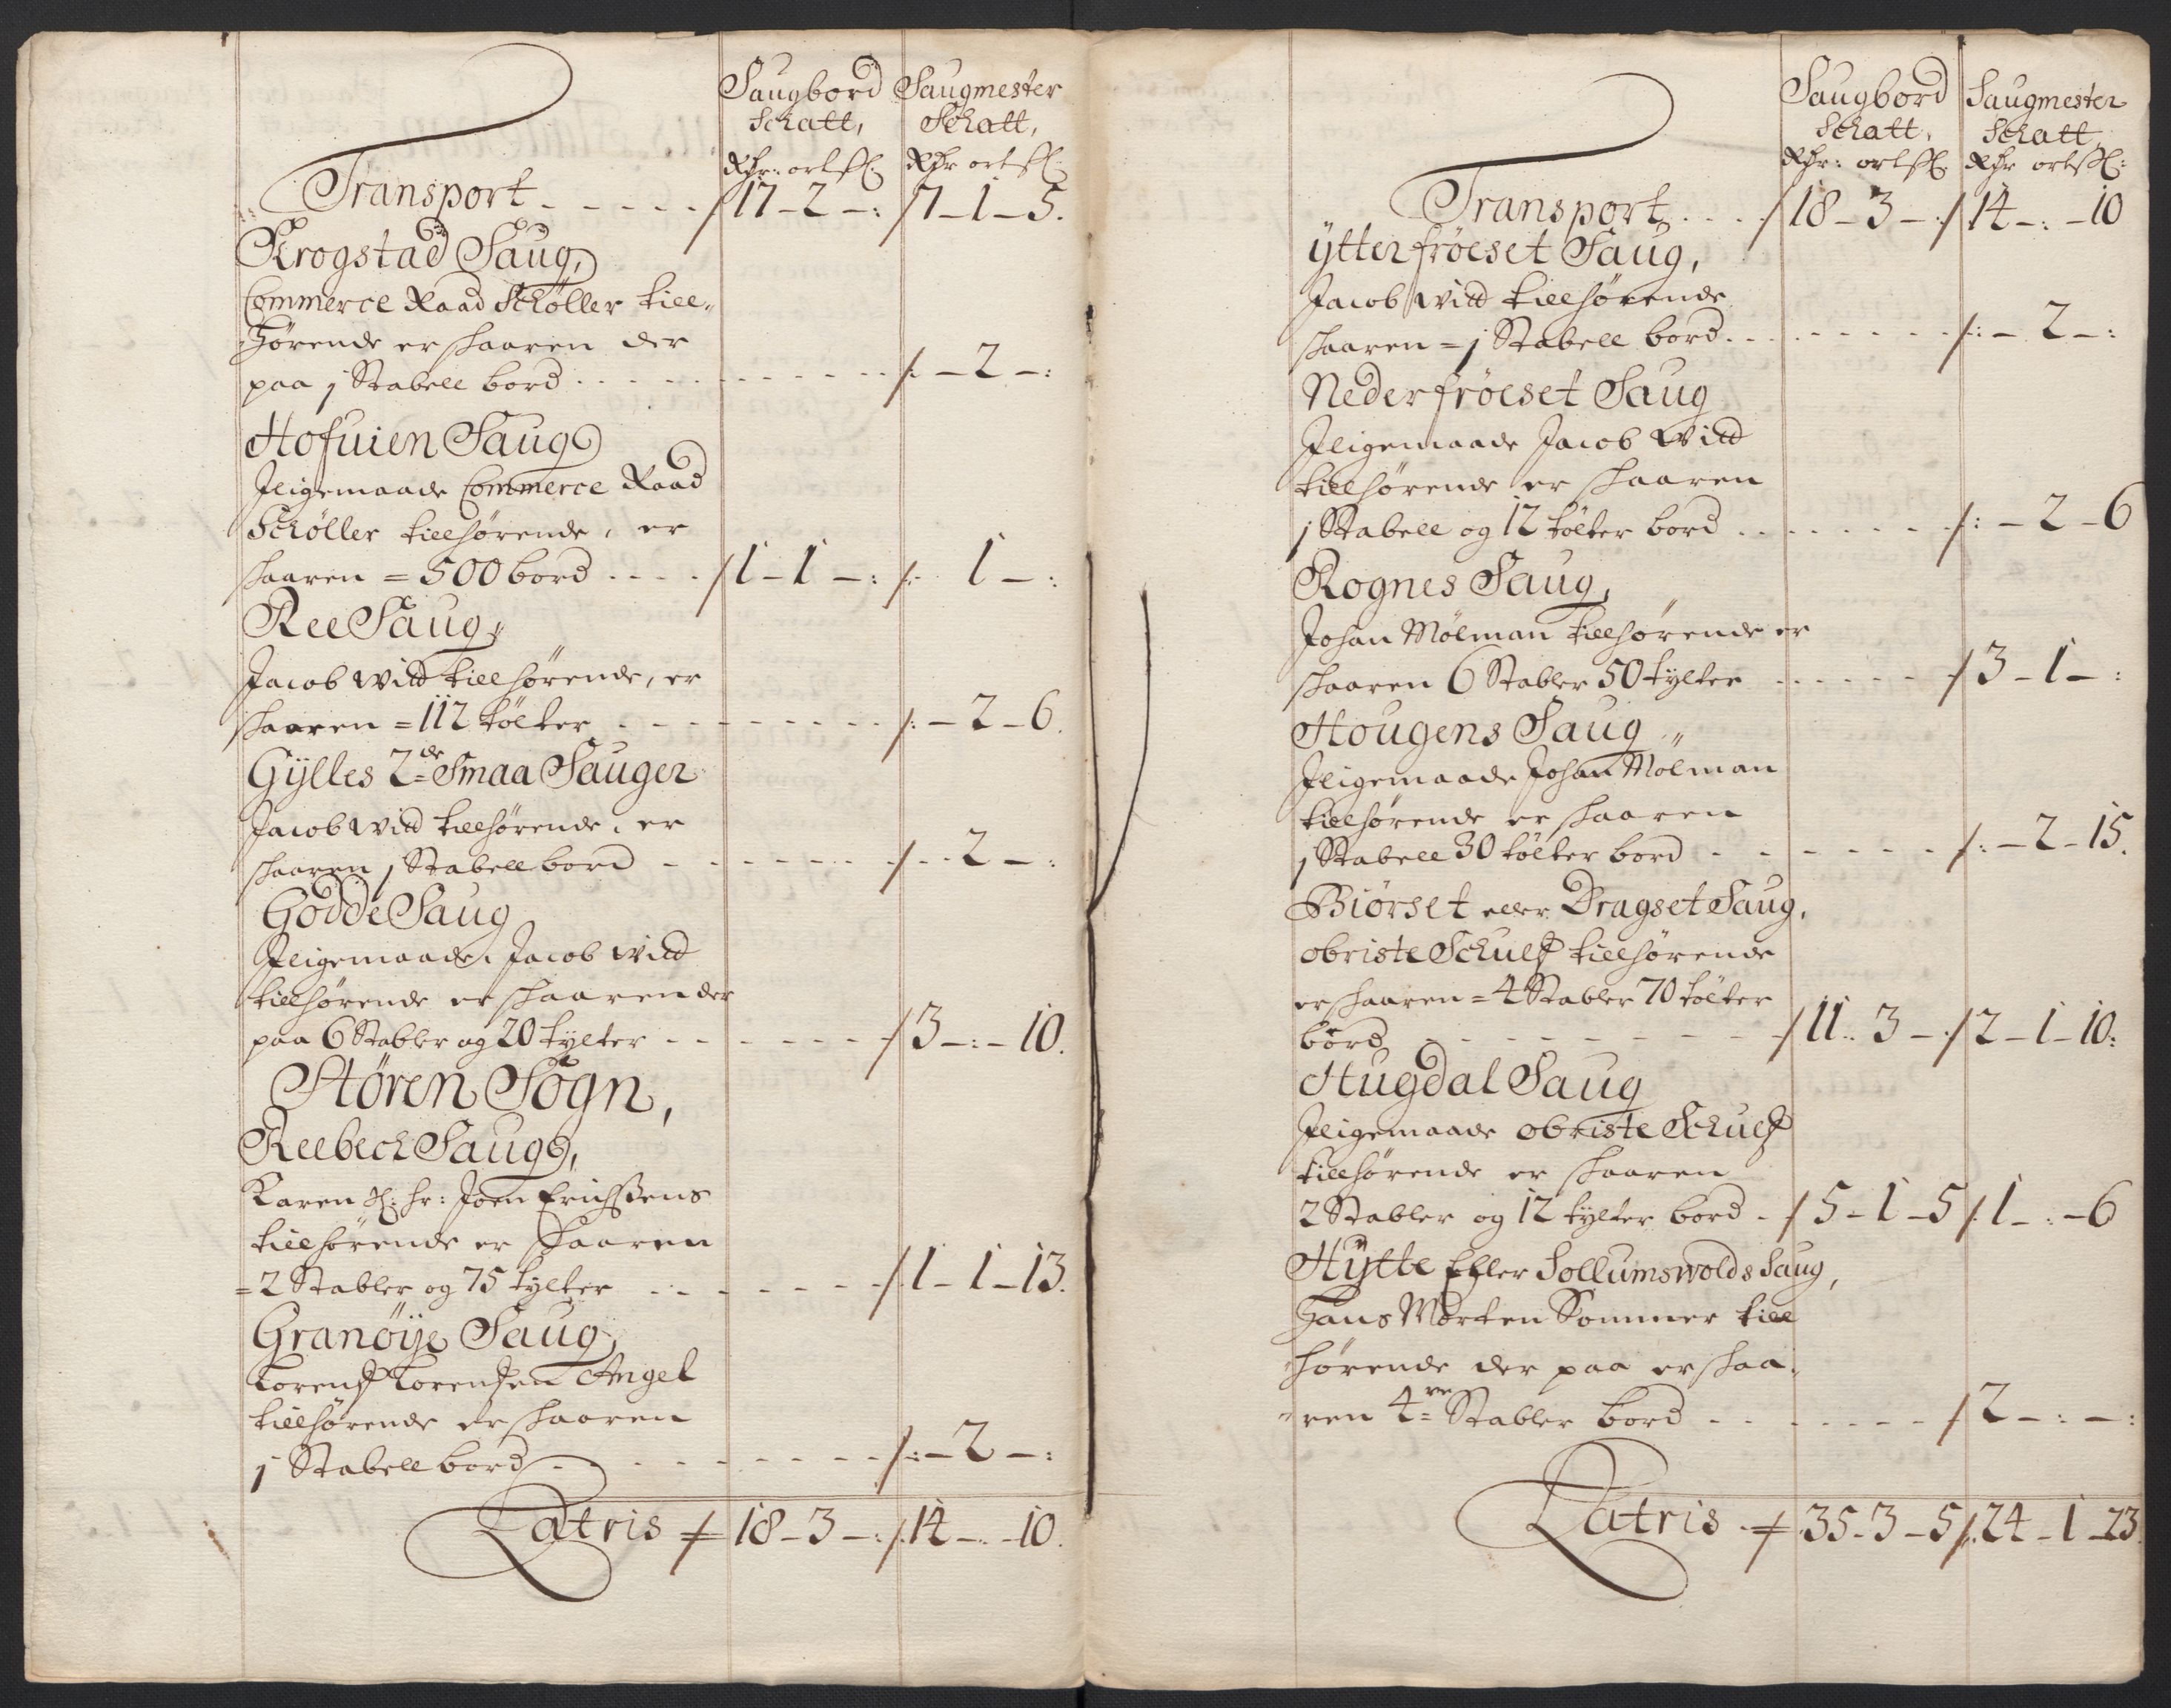 Saugbord Saugmester
Schatt, Schatt,
Rdr: ort ß. Rdr ort ß.
Transport - - - - - 17 - 2 - : 7 - 1 - 5.
Krogstad Saug,
Commerce Raad Schøller till-
hørende er skaaren der
paa j Stabell bord - - - - : - 2 - :
Hofuien Saug
Jligemaade Commerce Raad
Schøller tillhørende, er
skaaren = 500 bord - - - - 1 - 1 - : : 1 - :
Ree Saug,
Jacob Witd tillhørende, er
skaaren = 112 tölter - - - - : - 2 - 6.
Gÿlles 2de Smaa Sauger
Jacob Witd tillhørende, er
skaaren j Stabell bord - - - - 2 - :
Godde Saug
Jligemaade, Jacob Witd
tillhørende er skaaren der
paa 6 Stabler og 20 tÿlter - - - - 3 - : - 10.
Støren Sogn,
Reebech Saug,
Karen Sl: hr: Joen Erichßens
tillhørende er skaaren
= 2 Stabler og 75 tÿlter - - - - 1 - 1 - 13.
Granöÿe Saug,
Lorentz Lorentzen Angel
tillhørende er skaaren
j Stabell bord - - - - : - 2 - :
Latris 18 - 3 - : 14 - : - 10.
Saugbord Saugmester
Schatt, Schatt,
Rdr: ort ß. Rdr ort ß:
Transport - - - - 18 - 3 - 14 - : - 10
ÿtter frøeset Saug,
Jacob Witd tillhørende
skaaren = j Stabell bord - - - - : - 2 - :
Neder frøeset Saug
Jligemaade Jacob Witd
tillhørende er skaaren
j Stabell og 12 tölter bord - - - - : - 2 - 6
Rognes Saug,
Johan Mölman tillhørende er
skaaren 6 Stabler 50 tÿlter - - - - 3 - 1 - :
Hougens Saug
Jligemaade Johan Mölman
tillhørende er skaaren
j Stabell 30 tölter bord - - - - : - 2 - 15.
Biörset eller Dragset Saug,
obriste Schultz tillhørende
er skaaren = 4 Stabler 70 tölter
bord - - - - 11 - 3 - 2 - 1 - 10:
Hugdal Saug
Jligemaade obriste Schultz
tillhørende er skaaren
2 Stabler og 12 tÿlter bord - 5 - 1 - 5 1 - : - 6
Hÿtte Eller Sollumswolds Saug,
Hans Morten Sommer till
hørende der paa er skaa-
ren 4re Stabler bord - - - - 2 - : - :
Latris 35 - 3 - 5 24 - 1 - 23